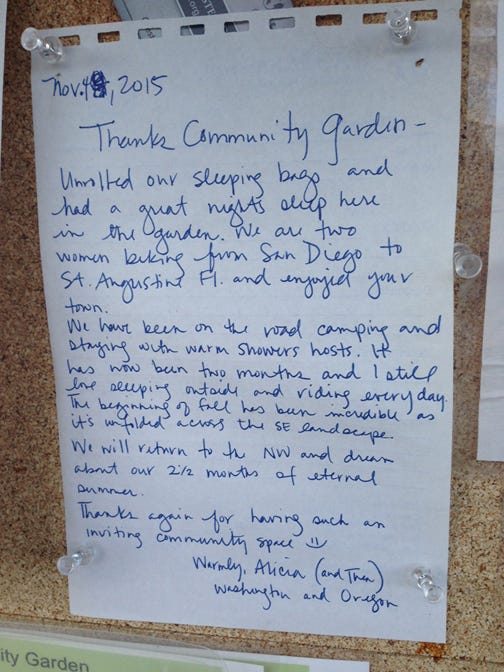 Nov. 4, 2015
Thanks Community Garden -
Unrolled our sleeping bags and
had a great nights sleep here
in the garden. We are two
women biking from San Diego to
St. Augustine Fl. and enjoyed your
town.
We have been on the road camping and
staying with warm showers hosts. It
has now been two months and I still
love sleeping outside and riding everyday.
The beginning of fall has been incredible as
it's unfolded across the SE landscape.
We will return to the NW and dream
about our 2 1/2 months of eternal
summer.
Thanks again for having such an
inviting community space
Warmly, Alicia (and
Washington and Oregon
ity Garden